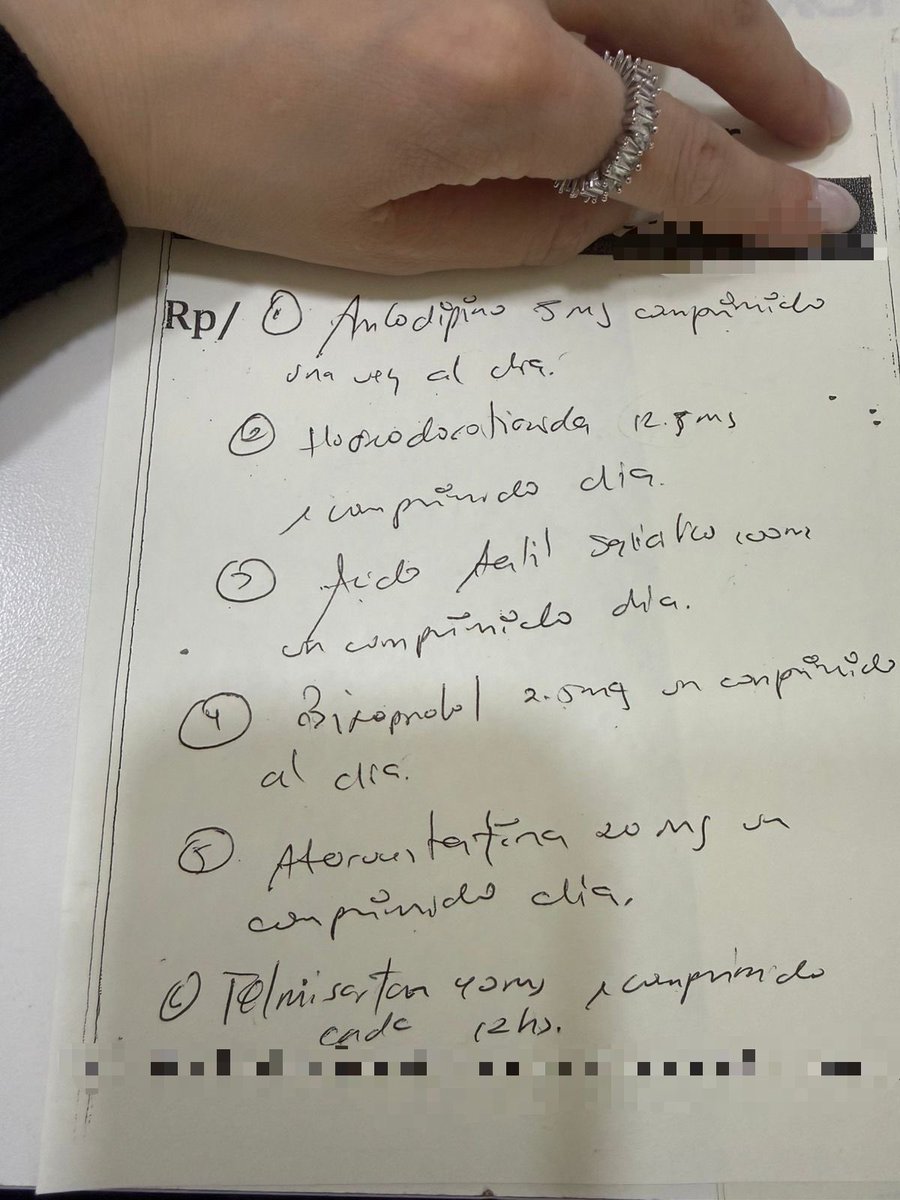 Rp/ ① Amlodipino 5 mg comprimido
una vez al dia.
② Hidroclorotiazida 12.5 mg
1 comprimido dia.
③ Acido Acetil Salicilico 100 m
un comprimido dia.
④ Bisoprolol 2.5 mg un comprimido
al dia.
⑤ Atorvastatina 20 mg un
comprimido dia.
⑥ Telmisartan 40 mg 1 comprimido
cada 12 hs.